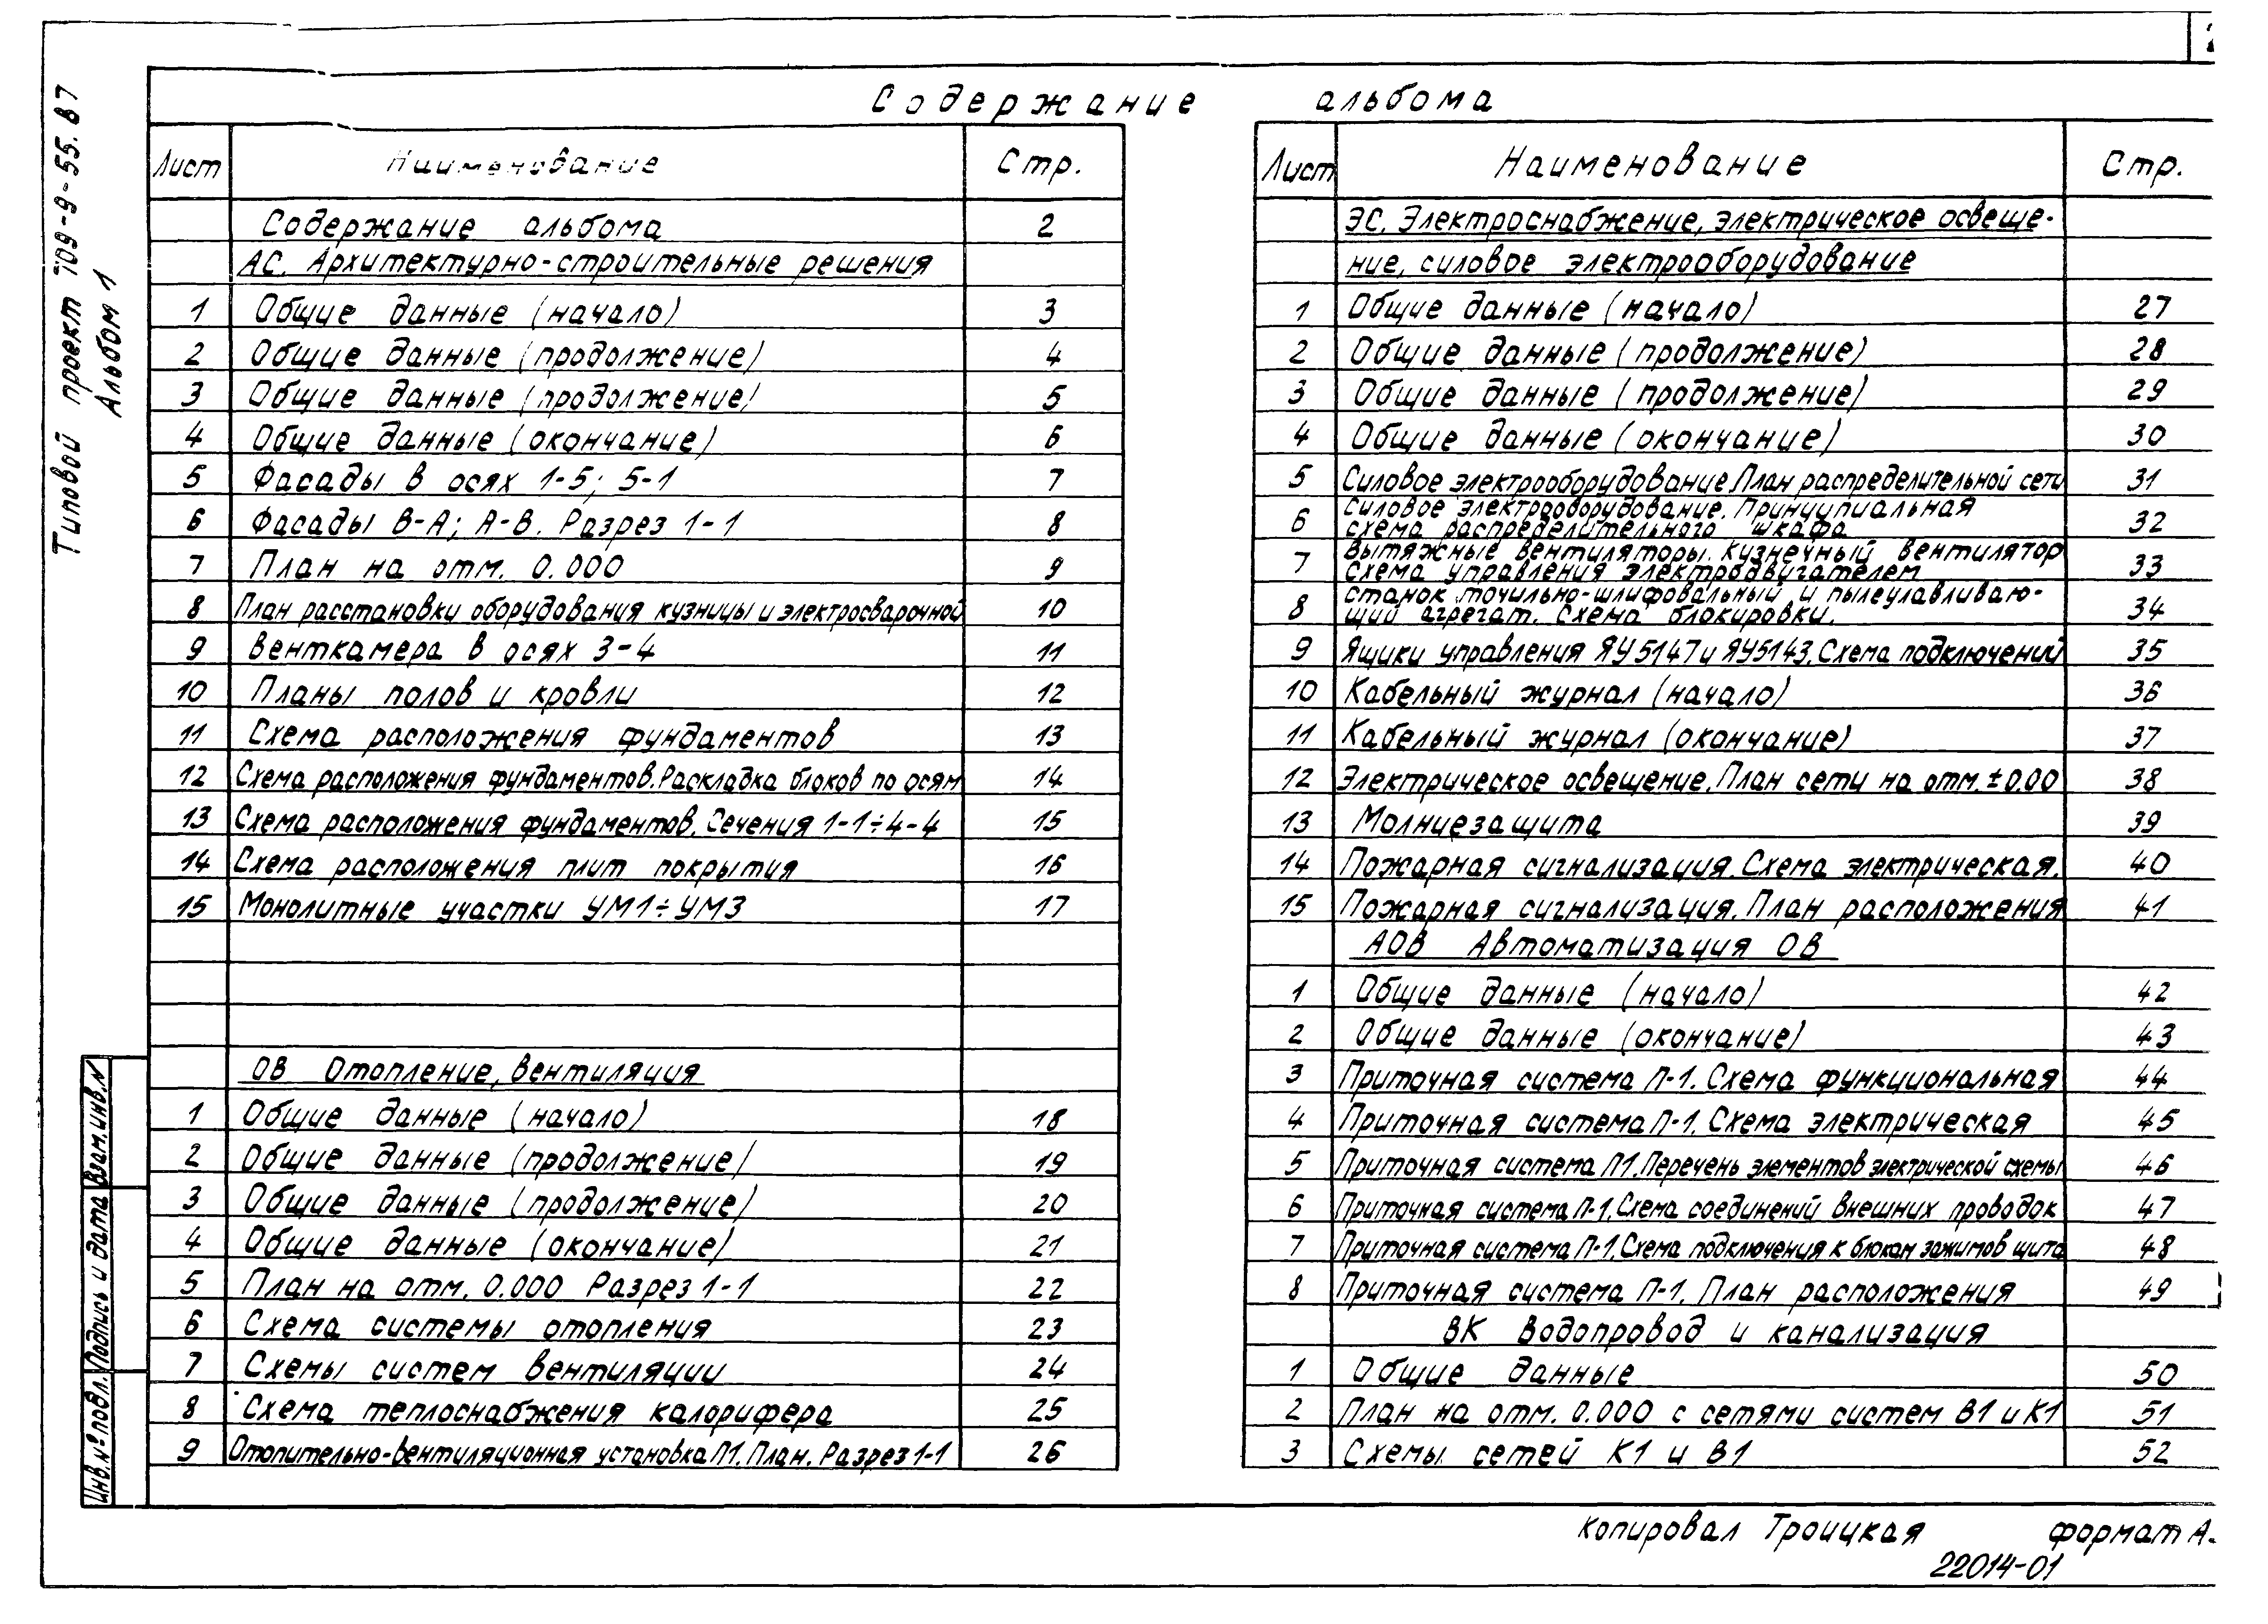 Содержание альбома
Типовой проект 709-9-55.87
Альбом 1
Лист Наименование Стр.
Содержание альбома 2
АС. Архитектурно-строительные решения
1 Общие данные (начало) 3
2 Общие данные (продолжение) 4
3 Общие данные (продолжение) 5
4 Общие данные (окончание) 6
5 Фасады в осях 1-5; 5-1 7
6 Фасады В-А; А-В. Разрез 1-1 8
7 План на отм. 0.000 9
8 План расстановки оборудования кузницы и электросварочной 10
9 Венткамера в осях 3-4 11
10 Планы полов и кровли 12
11 Схема расположения фундаментов 13
12 Схема расположения фундаментов. Раскладка блоков по осям 14
13 Схема расположения фундаментов. Сечения 1-1÷4-4 15
14 Схема расположения плит покрытия 16
15 Монолитные участки УМ1÷УМ3 17
ОВ Отопление, вентиляция
1 Общие данные (начало) 18
2 Общие данные (продолжение) 19
3 Общие данные (продолжение) 20
4 Общие данные (окончание) 21
5 План на отм. 0.000 Разрез 1-1 22
6 Схема системы отопления 23
7 Схемы систем вентиляции 24
8 Схема теплоснабжения калорифера 25
9 Отопительно-вентиляционная установка П1. План. Разрез 1-1 26
Лист Наименование Стр.
ЭС. Электроснабжение, электрическое освеще-
ние, силовое электрооборудование
1 Общие данные (начало) 27
2 Общие данные (продолжение) 28
3 Общие данные (продолжение) 29
4 Общие данные (окончание) 30
5 Силовое электрооборудование. План распределительной сети 31
6 Силовое электрооборудование. Принципиальная 32
схема распределительного шкафа
7 Вытяжные вентиляторы. Кузнечный вентилятор 33
Схема управления электродвигателем
8 Станок точильно-шлифовальный и пылеулавливаю- 34
щий агрегат. Схема блокировки.
9 Ящики управления ЯУ5147 и ЯУ5143. Схема подключений 35
10 Кабельный журнал (начало) 36
11 Кабельный журнал (окончание) 37
12 Электрическое освещение. План сети на отм. ±0.00 38
13 Молниезащита 39
14 Пожарная сигнализация. Схема электрическая. 40
15 Пожарная сигнализация. План расположения 41
АОВ Автоматизация ОВ
1 Общие данные (начало) 42
2 Общие данные (окончание) 43
3 Приточная система П-1. Схема функциональная 44
4 Приточная система П-1. Схема электрическая 45
5 Приточная система П1. Перечень элементов электрической схемы 46
6 Приточная система П-1. Схема соединений внешних проводок 47
7 Приточная система П-1. Схема подключения к блокам зажимов щита 48
8 Приточная система П-1. План расположения 49
ВК Водопровод и канализация
1 Общие данные 50
2 План на отм. 0.000 с сетями систем В1 и К1 51
3 Схемы сетей К1 и В1 52
Взам.инв.N
Подпись и дата
Инв.N° подл.
Копировал Троицкая формат А
22014-01